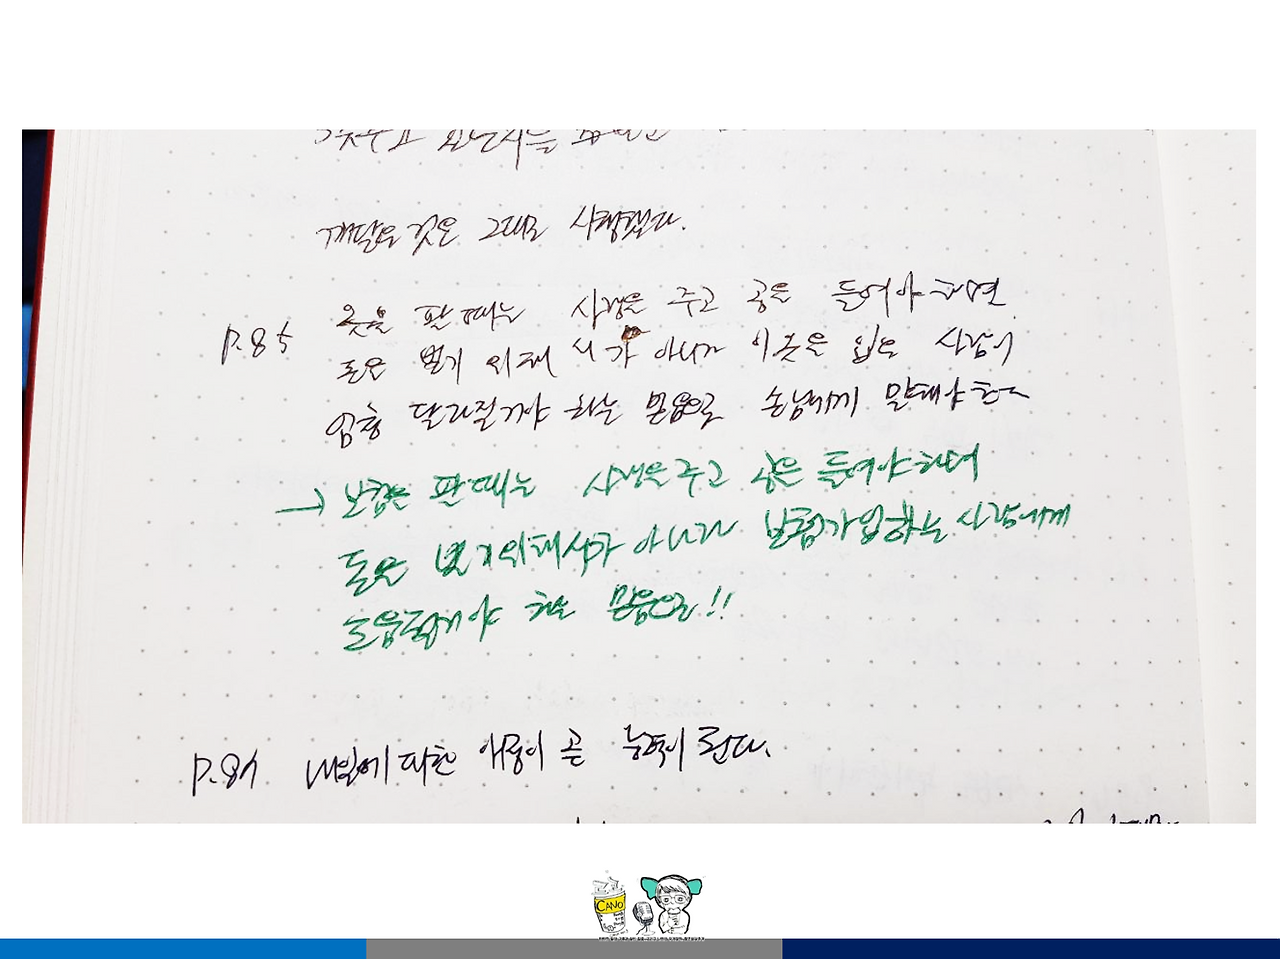 깨달은 것은 그대로 시행했다.
P.85 옷을 판때는 사명을 주고 공을 들여야하면
돈을 벌기 위해서가 아니라 이옷을 입은 사람이
엄청 달라질거야 하는 믿음으로 손님에게 말해야한다
→ 보험을 판때는 사명을 주고 공을 들여야하며
돈을 벌기위해서가 아니라 보험가입하는 사람에게
도움될거야 하는 믿음으로!!
내일에 대한 애정이 곧 능력이 된다.
CANO